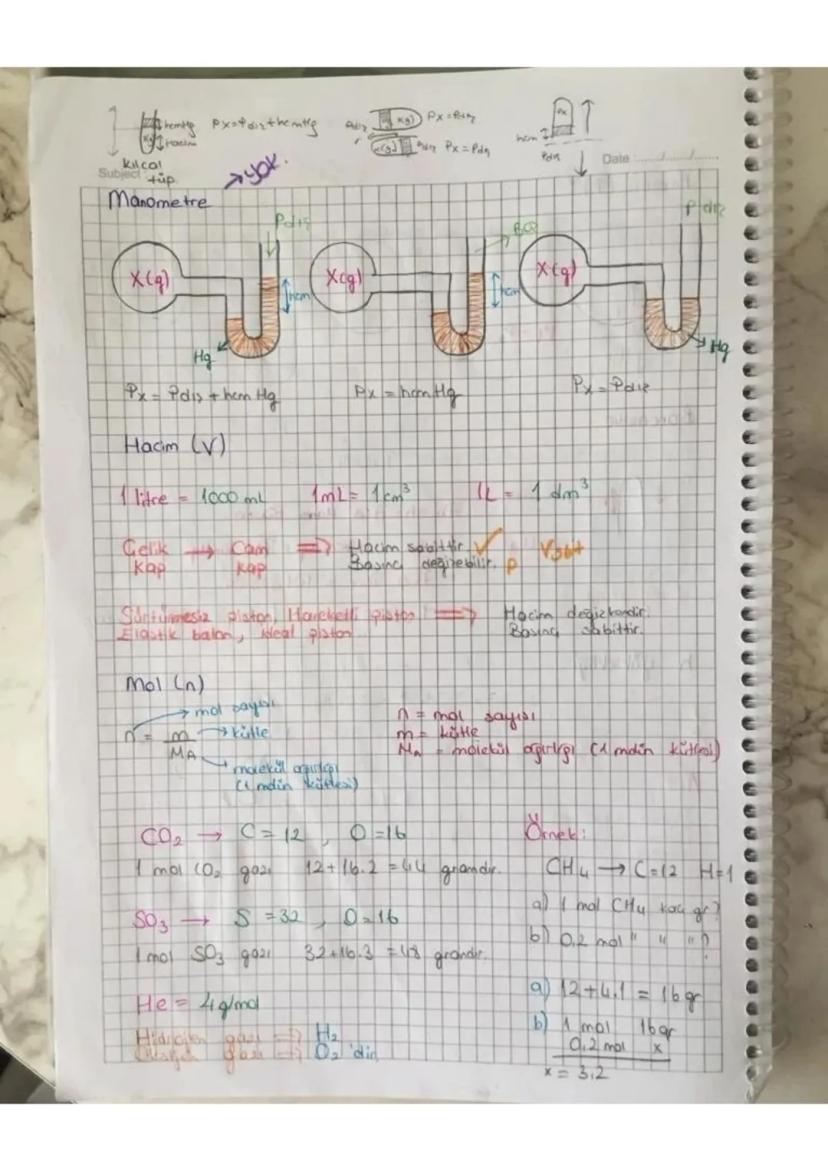 hcmHg Px=Pdış+hcmHg
Pdış X(g) Px=Pdış
X(g) Pdış Px=Pdış
Px
hcm
Pdış
Kılcal
tüp
→ yok.
Subject
Date
Manometre
Pdış
P dış
X(g) X(g) X(g)
hcm hcm
Hg Hg
Px = Pdış + hcm Hg Px = hcm Hg Px = Pdış
Hacim (V)
1 litre = 1000 mL 1mL = 1cm³ 1L = 1 dm³
Çelik → Cam ⇒ Hacim sabittir ✓ V sbt
kap kap Basınç değişebilir. P
Sürtünmesiz piston, Hareketli piston ⇒ Hacim değişkendir.
Elastik balon, ideal piston Basınç sabittir.
Mol (n)
→ mol sayısı
n = m → kütle
MA
→ molekül ağırlığı
(1 molün kütlesi)
n = mol sayısı
m = kütle
MA = molekül ağırlığı (1 molün kütlesi)
CO₂ → C = 12 , O = 16
1 mol CO₂ gazı 12 + 16.2 = 44 gramdır.
SO₃ → S = 32 , O = 16
1 mol SO₃ gazı 32+16.3 = 48 gramdır.
He = 4 g/mol
Hidrojen gazı ⇒ H₂
gazı ⇒ O₂ 'dir.
Örnek:
CH₄ → C=12 H=1
a) 1 mol CH₄ kaç gr?
b) 0,2 mol " " " ?
a) 12+4.1 = 16 gr
b) 1 mol 16gr
0,2 mol x
x = 3,2